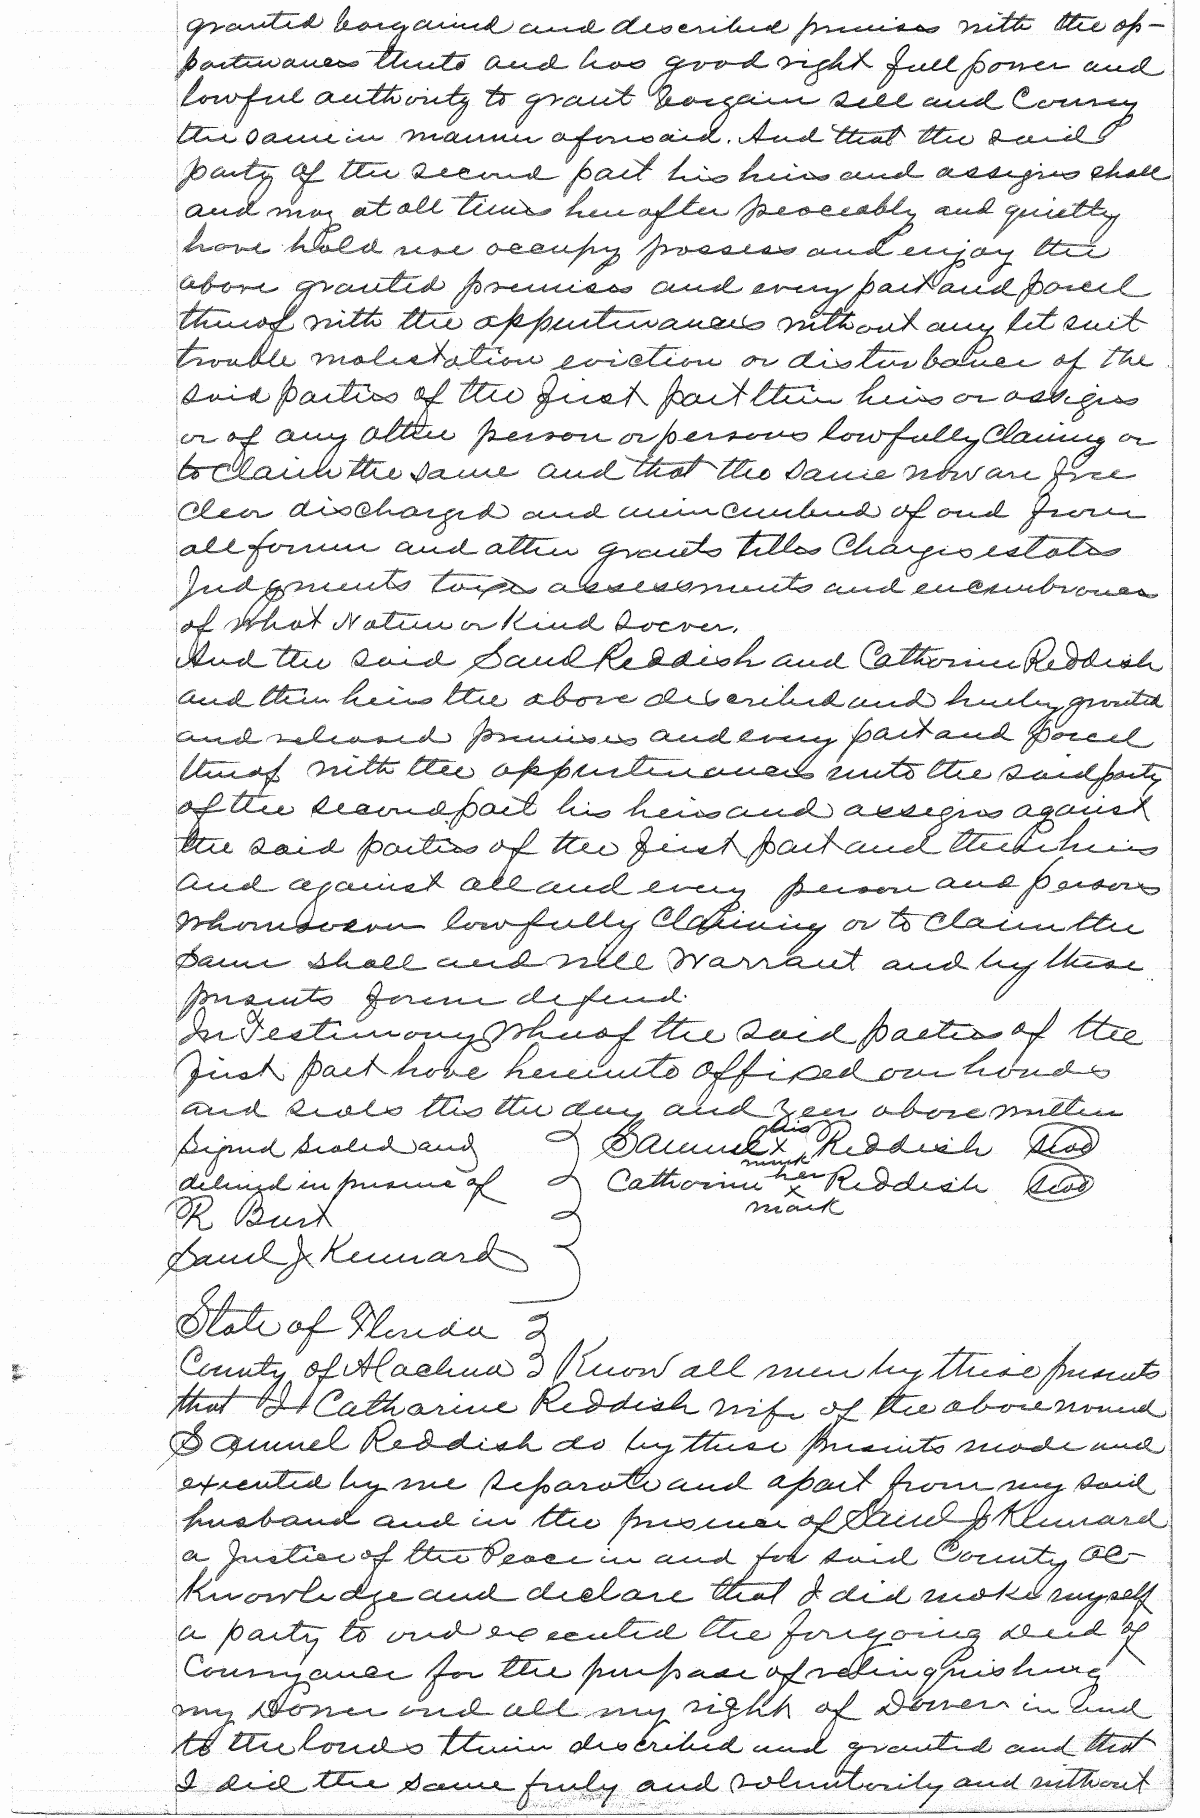 granted bargained and described premises with the ap-
partinances thereto and has good right full power and
lawful authority to grant bargain sell and Convey
the same in manner aforesaid. And that the said
party of the second part his heirs and assigns shall
and may at all times hereafter peaceably and quietly
have hold use occupy possess and enjoy the
above granted premises and every part and parcel
thereof with the appurtenances without any let suit
trouble molestation eviction or disturbance of the
said parties of the first part their heirs or assigns
or of any other person or persons lawfully Claiming or
to Claim the same and that the same now are free
clear discharged and unincumbered of and from
all former and other grants titles Charges estates
Judgments taxes assessments and encumbrances
of what Nature or Kind soever.
And the said Saml Reddish and Catharine Reddish
and their heirs the above described and hereby granted
and released premises and every part and parcel
thereof with the appurtenances unto the said party
of the second part his heirs and assigns against
the said parties of the first part and their heirs
and against all and every person and persons
whomsoever lawfully Claiming or to Claim the
same shall and will Warrant and by these
presents forever defend.
In Testimony Whereof the said parties of the
first part have hereunto affixed our hands
and seals this the day and Year above written
Signed Sealed and } Samuel his x mark Reddish (Seal)
delivered in presence of } Catharine her x mark Reddish (Seal)
R Burt
Saml J Kennard
State of Florida }
County of Alachua } Know all men by these presents
that I Catharine Reddish wife of the above named
Samuel Reddish do by these presents made and
executed by me separate and apart from my said
husband and in the presence of Saml J Kennard
a Justice of the Peace in and for said County ac-
knowledge and declare that I did make myself
a party to and executed the foregoing deed of
Conveyance for the purpose of relinquishing
my Dower and all my right of Dower in and
to the lands therein described and granted and that
I did the same freely and voluntarily and without